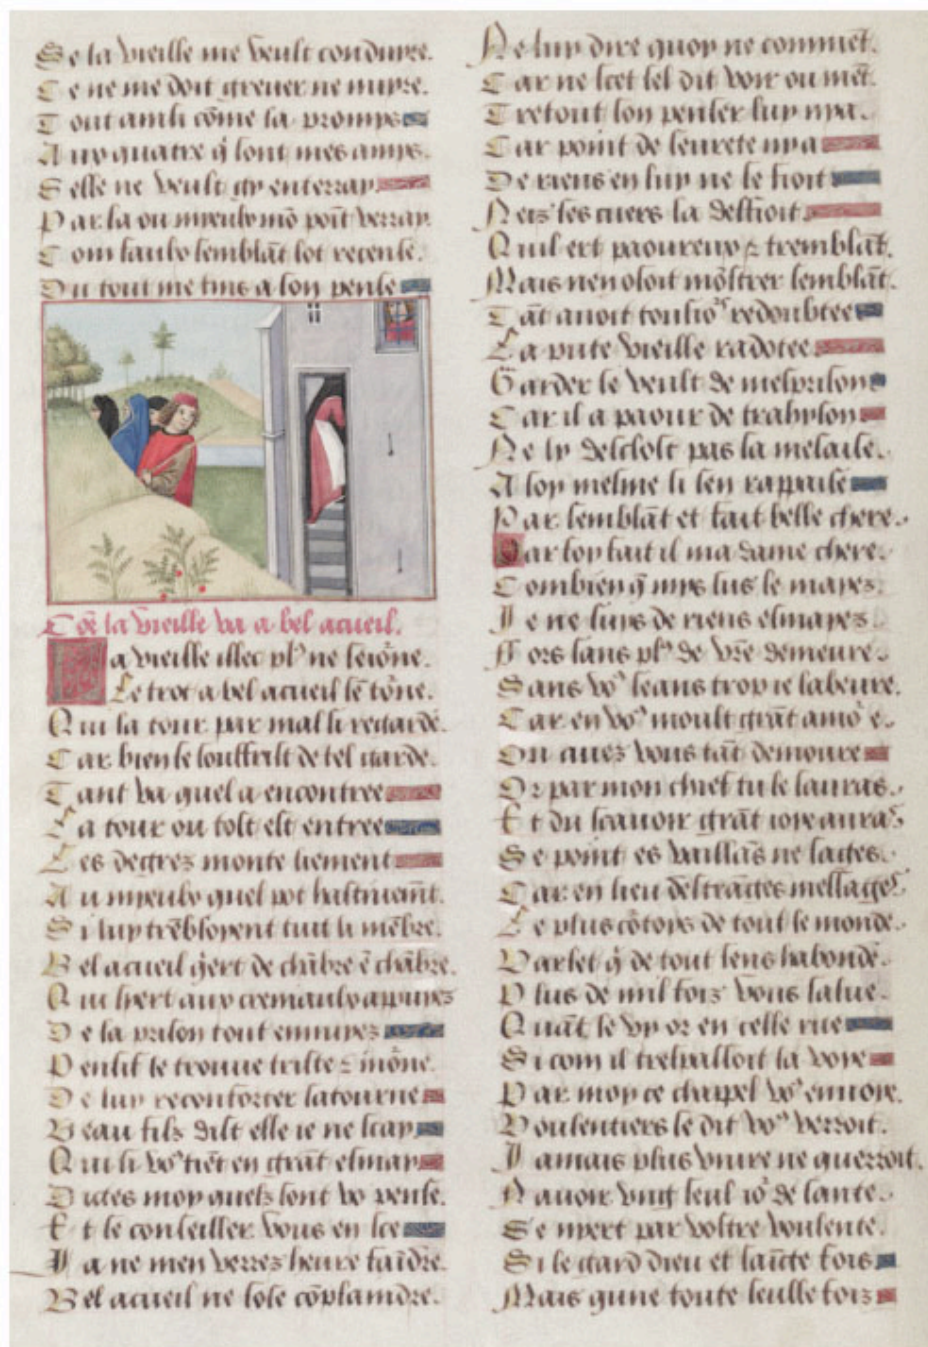 Se la vieille me veult conduyre.
Ce ne me doit grever ne nuyre.
Tout ainsi cōme la promys
Aux quatre q̄ sont mes amys.
Selle ne veult gy enterray
Par la ou myeulx mō poīt verray
Com faulx semblāt lot recense.
Du tout me tins a son pense
Cōe la vieille va a bel acueil.
La vieille illec pl' ne seiōne.
Le trot a bel acueil se tōne.
Qui la tour par mal li regarde.
Car bien se souffrist de tel garde.
Tant va quel a encontree
La tour ou tost est entree
Les degrez monte liement
Au myeulx quel pot hastiuem̄t.
Si luy trēbloyent tuit li mēbre.
Bel acueil q̄ert de chābre ē chābre.
Qui siert aux cremaulx appuyez
De la prison tout ennuyez
Pensif le trouue triste z mōne.
De luy reconforter satourne
Beau filz dist elle ie ne scay
Qui li vo' tiēt en grāt esmay
Dictes moy quelz sont vo pense.
Et se conseiller vous en sce
Ja ne men verrez heure faīdre.
Bel acueil ne sose cōplaindre.
Ne luy dire quoy ne commēt.
Car ne scet sel dit voir ou mēt.
Tretout son penser luy nya.
Car point de seurete nya
De riens en luy ne se fioit
Neiz ses cuers la deffioit
Quil ert paoureux z tremblāt.
Mais nen osoit mōstrer semblāt.
Tāt auoit tousio's redoubtee
La pute vieille radotee
Garder se veult de mesprison
Car il a paour de trahyson
Ne ly desclost pas sa mesaise.
A soy mesme li sen rappaise
Par semblāt et fait belle chere.
Par foy fait il ma dame chere.
Combien q̄ mys sus le mayez
Je ne suys de riens esmayez
Fors sans pl' de vr̄e demeure.
Sans vo' leans trop ie labeure.
Car en vo' moult grāt amo' e.
Ou auez vous tāt demoure
Or par mon chief tu le sauras.
Et du scauoir grāt ioye auras
Se point es vaillās ne saiges.
Car en lieu destrāges messages
Le plus cōtoys de tout le monde.
Varlet q̄ de tout sens habonde.
Plus de mil foiz vous salue.
Quāt le vy or en celle rue
Si com il trespassoit la voye
Par moy ce chappel vo' enuoye.
Voulentiers se dit vo' verroit.
Jamais plus viure ne querroit.
Nauoir vng seul io' de sante.
Se nyert par vostre voulente.
Si le gard dieu et saīcte fois
Mais qune toute seulle foiz